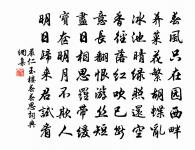 春風只在園西畔
薺菜花繁胡蝶亂
冰池晴綠照還空
香徑落紅吹已斷
意長翻恨游絲短
盡日相思羅帶緩
寶奩明月不欺人
明日歸來君試看
嚴仁玉樓春春思詞典
網集